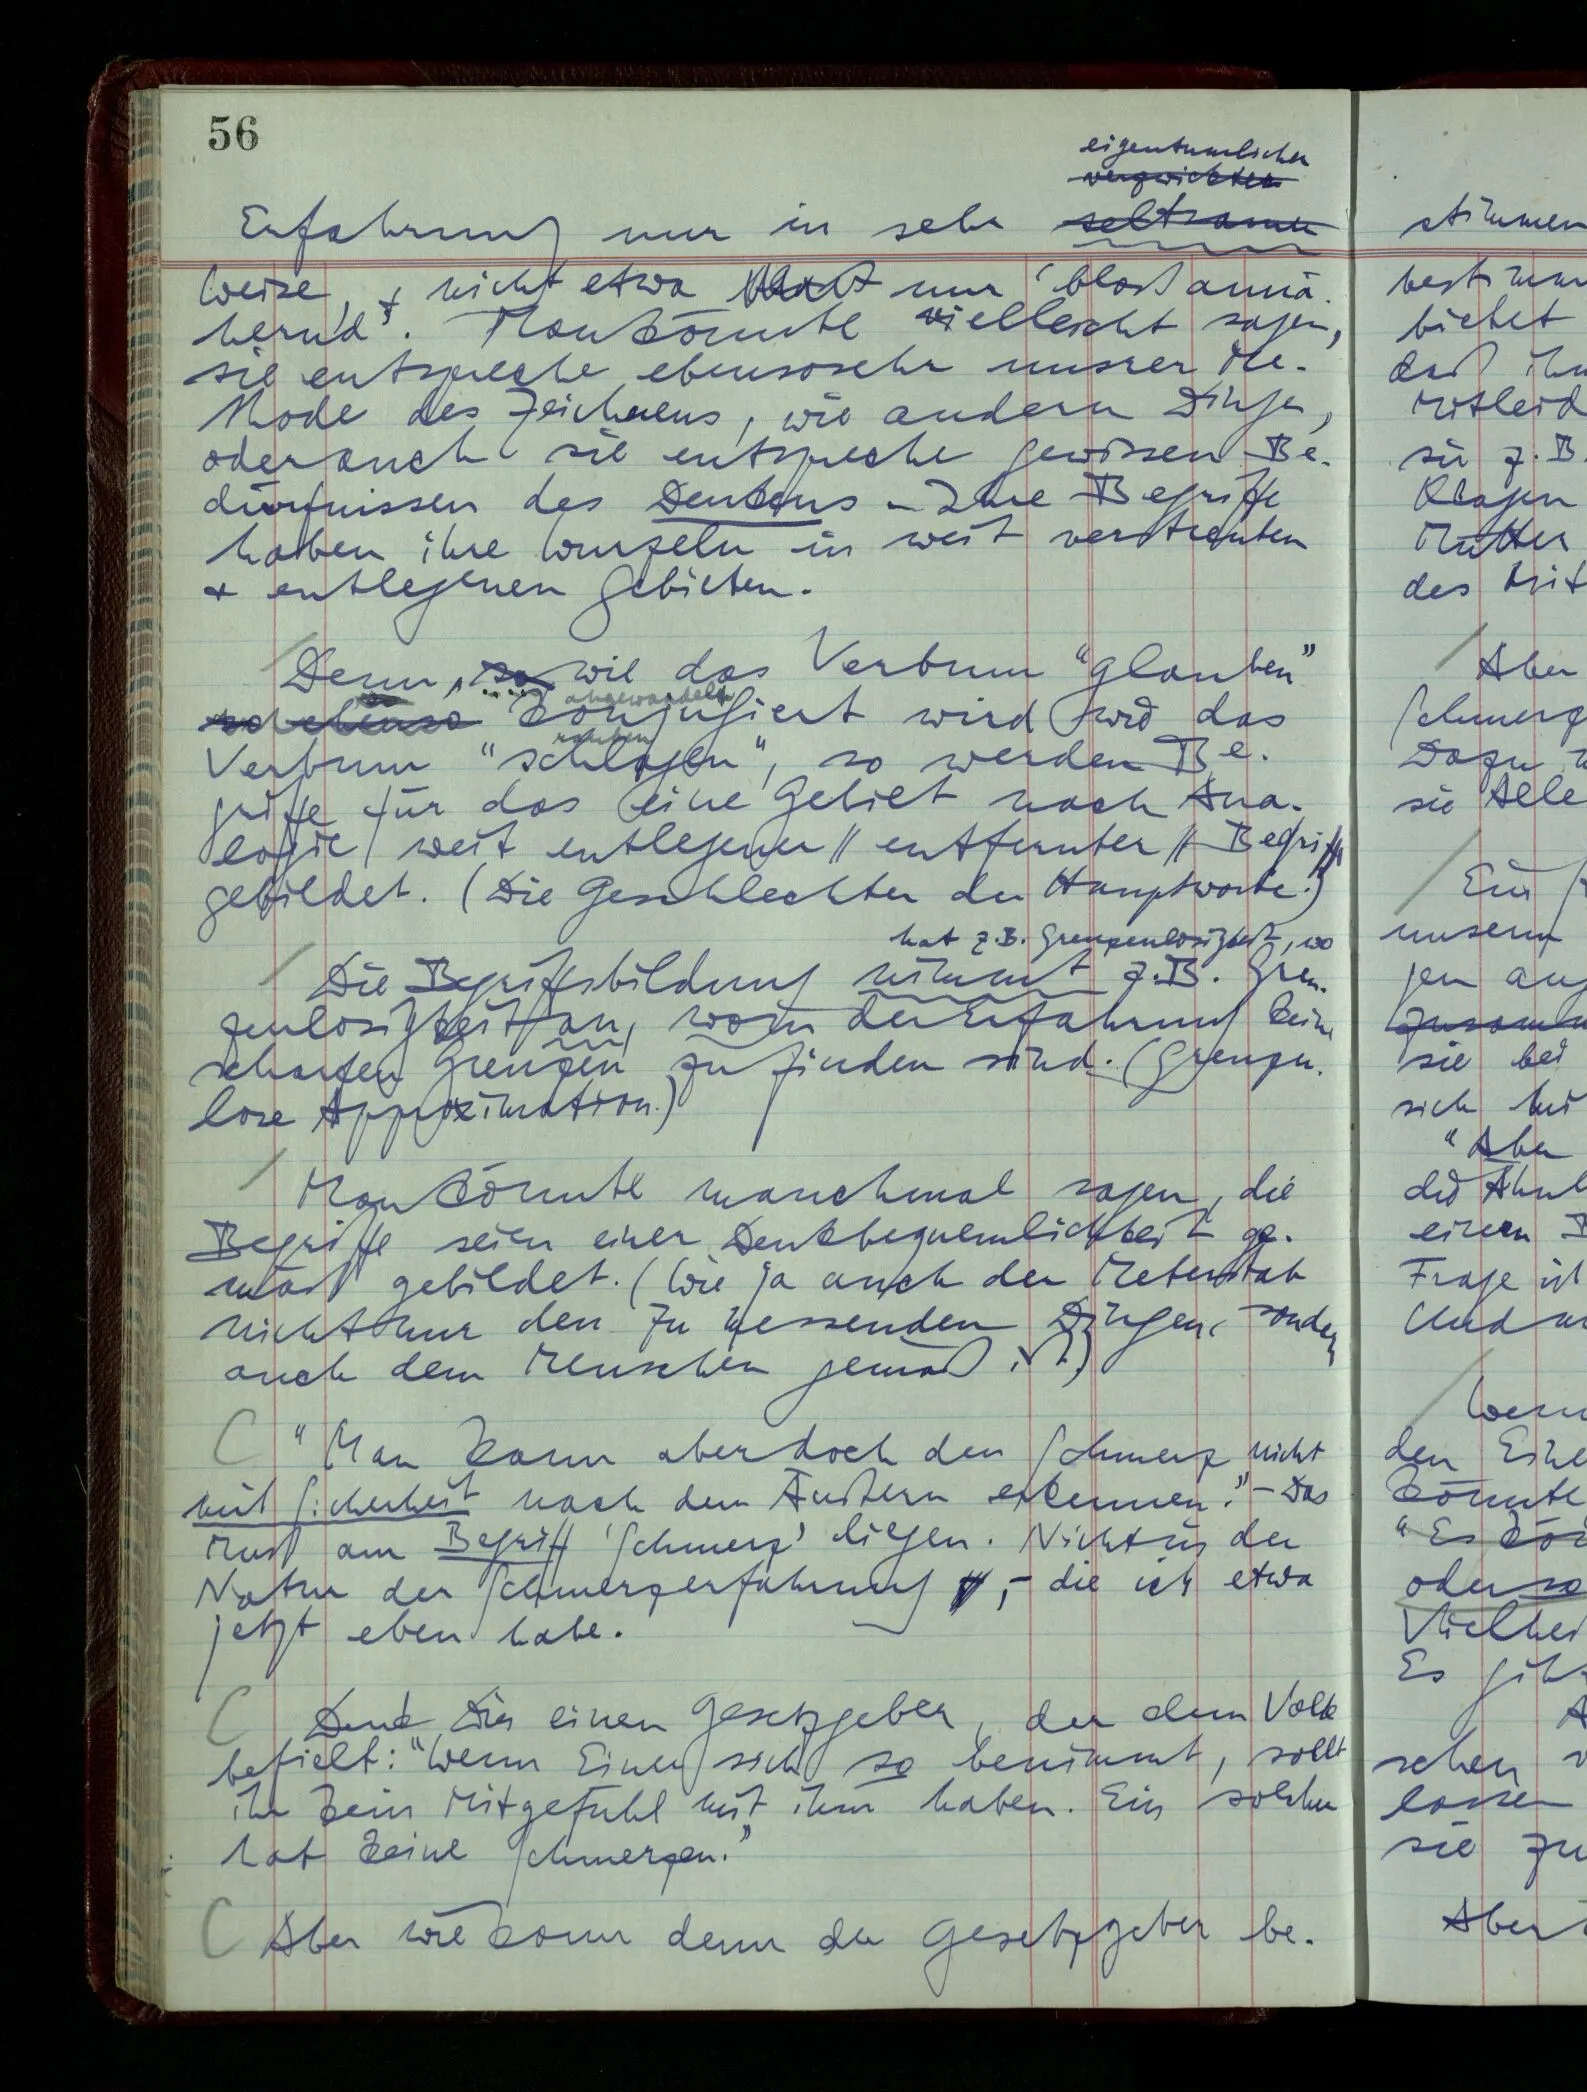 56
eigentümlicher
verzwickten
Erfahrung nur in sehr seltsamer
Weise, & nicht etwa nur 'bloß annä-
hernd'. Man könnte vielleicht sagen,
sie entspreche ebensosehr unsrer Me-
thode des Zeichnens, wie andern Dingen,
oder auch sie entspreche gewissen Be-
dürfnissen des Denkens – Ihre Begriffe
haben ihre Wurzeln in weit verstreuten
& entlegenen Gebieten.
Denn, so wie das Verbum "glauben"
so ebenso abgewandelt
konjugiert wird wie das
rauben
Verbum "schlagen", so werden Be-
griffe für das eine Gebiet nach Ana-
logie weit entlegener // entfernter // Begriffe
gebildet. (Die Geschlechter der Hauptworte.)
hat z.B. Grenzenlosigkeit, wo
Die Begriffsbildung nimmt z.B. Gren-
zenlosigkeit an, wo in der Erfahrung keine
scharfen Grenzen zu finden sind. (Grenzen-
lose Approximation.)
Man könnte manchmal sagen, die
Begriffe seien einer Denkbequemlichkeit ge-
mäß gebildet. (Wie ja auch der Meterstab
nicht nur den zu messenden Dingen, sondern
auch dem Menschen gemäß ist.)
C "Man kann aber doch den Schmerz nicht
mit Sicherheit nach dem Äußern erkennen." – Das
muß am Begriff 'Schmerz' liegen. Nicht in der
Natur der Schmerzerfahrung, – die ich etwa
jetzt eben habe.
C Denk Dir einen Gesetzgeber, der dem Volk
befielt: "Wenn Einer sich so benimmt, sollt
ihr kein Mitgefühl mit ihm haben. Ein solcher
hat keine Schmerzen."
C Aber wie kann denn der Gesetzgeber be-
stimmen
bietet
daß
Mitleid
sie z.B.
Klagen
Mutter
des
Aber
Schmerz
Dazu
sie Alle
Ein
unserm
sie bei
sich
"Aber
einem
Frage ist
Und
Wenn
den
könnte
"Es
oder so
Es
lassen
sie zu
Aber